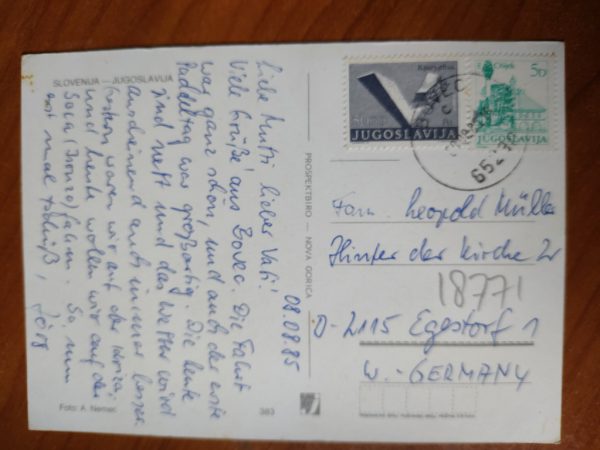 SLOVENIJA — JUGOSLAVIJA
08.08.85
Liebe Mutti, lieber Vati!
Viele Grüße aus Bovec. Die Fahrt
war ganz schön, und auch der erste
Paddeltag war großartig. Die Leute
sind nett und das Wetter wird
anscheinend auch immer besser.
Gestern waren wir auf der
und heute wollen wir auf der
Soca (Isonzo) fahren. So, nun
erst mal Tschüß,
Jörg
Foto: A. Nemec
383
PROSPEKTBIRO — NOVA GORICA
JUGOSLAVIJA
50
JUGOSLAVIJA
BOVEC
Fam. Leopold Müller
Hinter der Kirche
18771
D-2115 Egestorf 1
W.-GERMANY